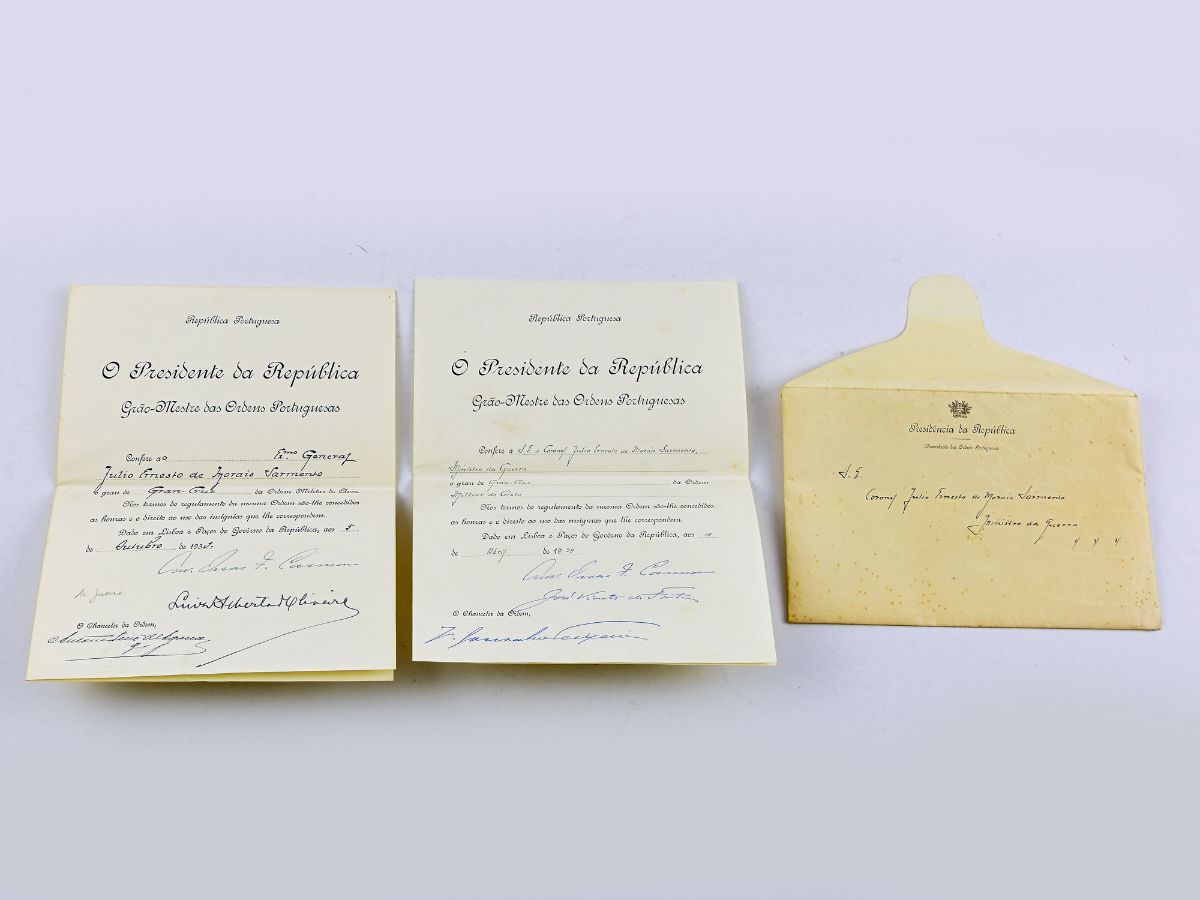 República Portuguesa
O Presidente da República
Grão-Mestre das Ordens Portuguesas
Confere ao Exmo General
Julio Ernesto de Morais Sarmento
o grau de Gran-Cruz da Ordem Militar de
Nos termos do regulamento da mesma Ordem são-lhe concedidas
as honras e o direito ao uso das insígnias que lhe correspondem.
Dado em Lisboa e Paços do Govêrno da República, aos 5
de Outubro de 193
Luis Alberto d'Oliveira
O Chanceler da Ordem,
República Portuguesa
O Presidente da República
Grão-Mestre das Ordens Portuguesas
Confere a S. E. o Coronel Julio Ernesto de Morais Sarmento,
Ministro da Guerra
o grau de Gran-Cruz da Ordem
Militar de Cristo
Nos termos do regulamento da mesma Ordem são-lhe concedidas
as honras e o direito ao uso das insígnias que lhe correspondem.
Dado em Lisboa e Paços do Govêrno da República, aos
de Abril de 1929
José Vicente de Freitas
O Chanceler da Ordem,
Presidência da República
Chancelaria das Ordens Portuguesas
S. E.
Coronel Julio Ernesto de Morais Sarmento
Ministro da Guerra